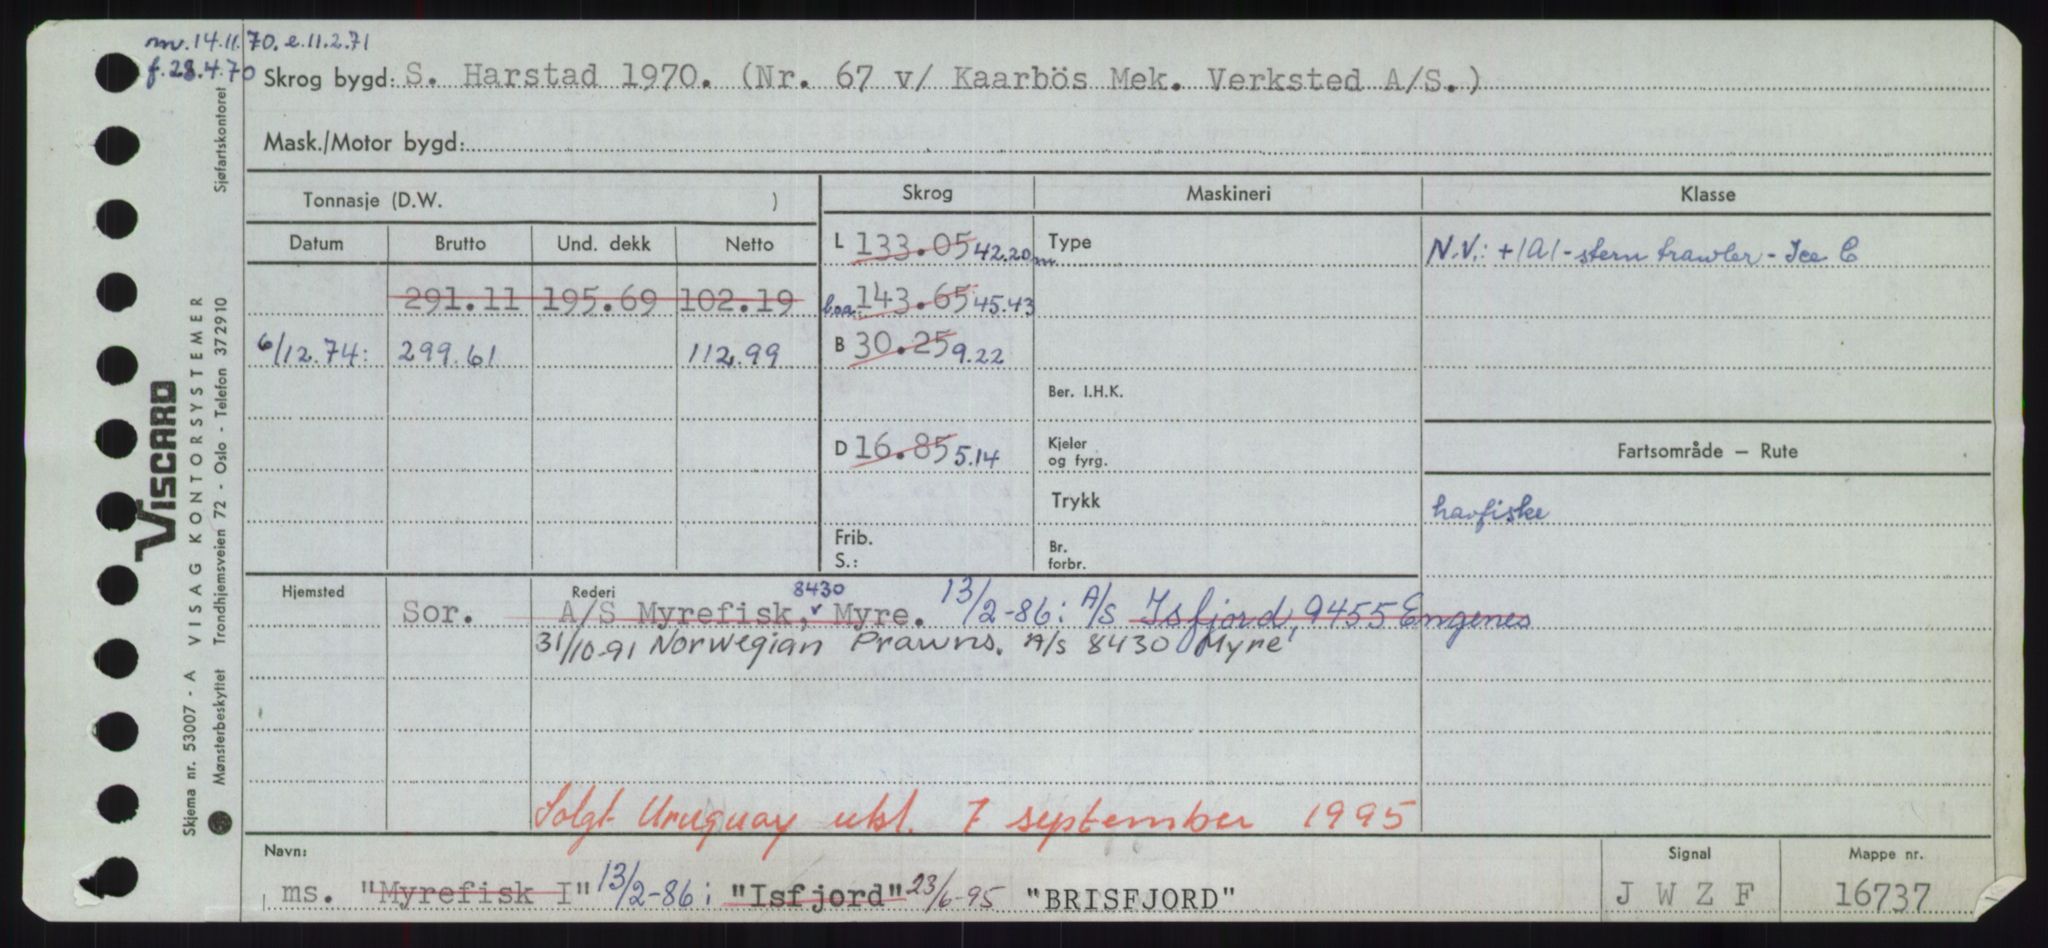 mv. 14.11.70. e. 11.2.71
f. 28.4.70
Skrog bygd: S. Harstad 1970. (Nr. 67 v/ Kaarbös Mek. Verksted A/S.)
Mask./Motor bygd:
Tonnasje (D.W. )
Skrog
Maskineri
Klasse
Datum Brutto Und. dekk Netto
L 133.05 42.20 m
Type
N.V.: +1A1 - stern trawler - Ice C
291.11 195.69 102.19
b.o.a. 143.65 45.43
6/12.74: 299.61 112.99
B 30.25 9.22
Ber. I.H.K.
D 16.85 5.14
Kjeler
og fyrg.
Fartsområde — Rute
Trykk
havfiske
Frib.
S.:
Br.
forbr.
Hjemsted
Rederi
Sor. A/S Myrefisk, 8430 Myre. 13/2-86: A/S Isfjord, 9455 Engenes
31/10-91 Norwegian Prawns. A/S 8430 Myre
Solgt Uruguay utsl. 7 september 1995
Navn:
Signal
Mappe nr.
ms. "Myrefisk I" 13/2-86: "Isfjord" 23/6-95 "BRISFJORD"
J W Z F
16737
VISCARD
Skjema nr. 53007 - A VISAG KONTORSYSTEMER
Mønsterbeskyttet Trondhjemsveien 72 - Oslo - Telefon 372910 Sjøfartskontoret